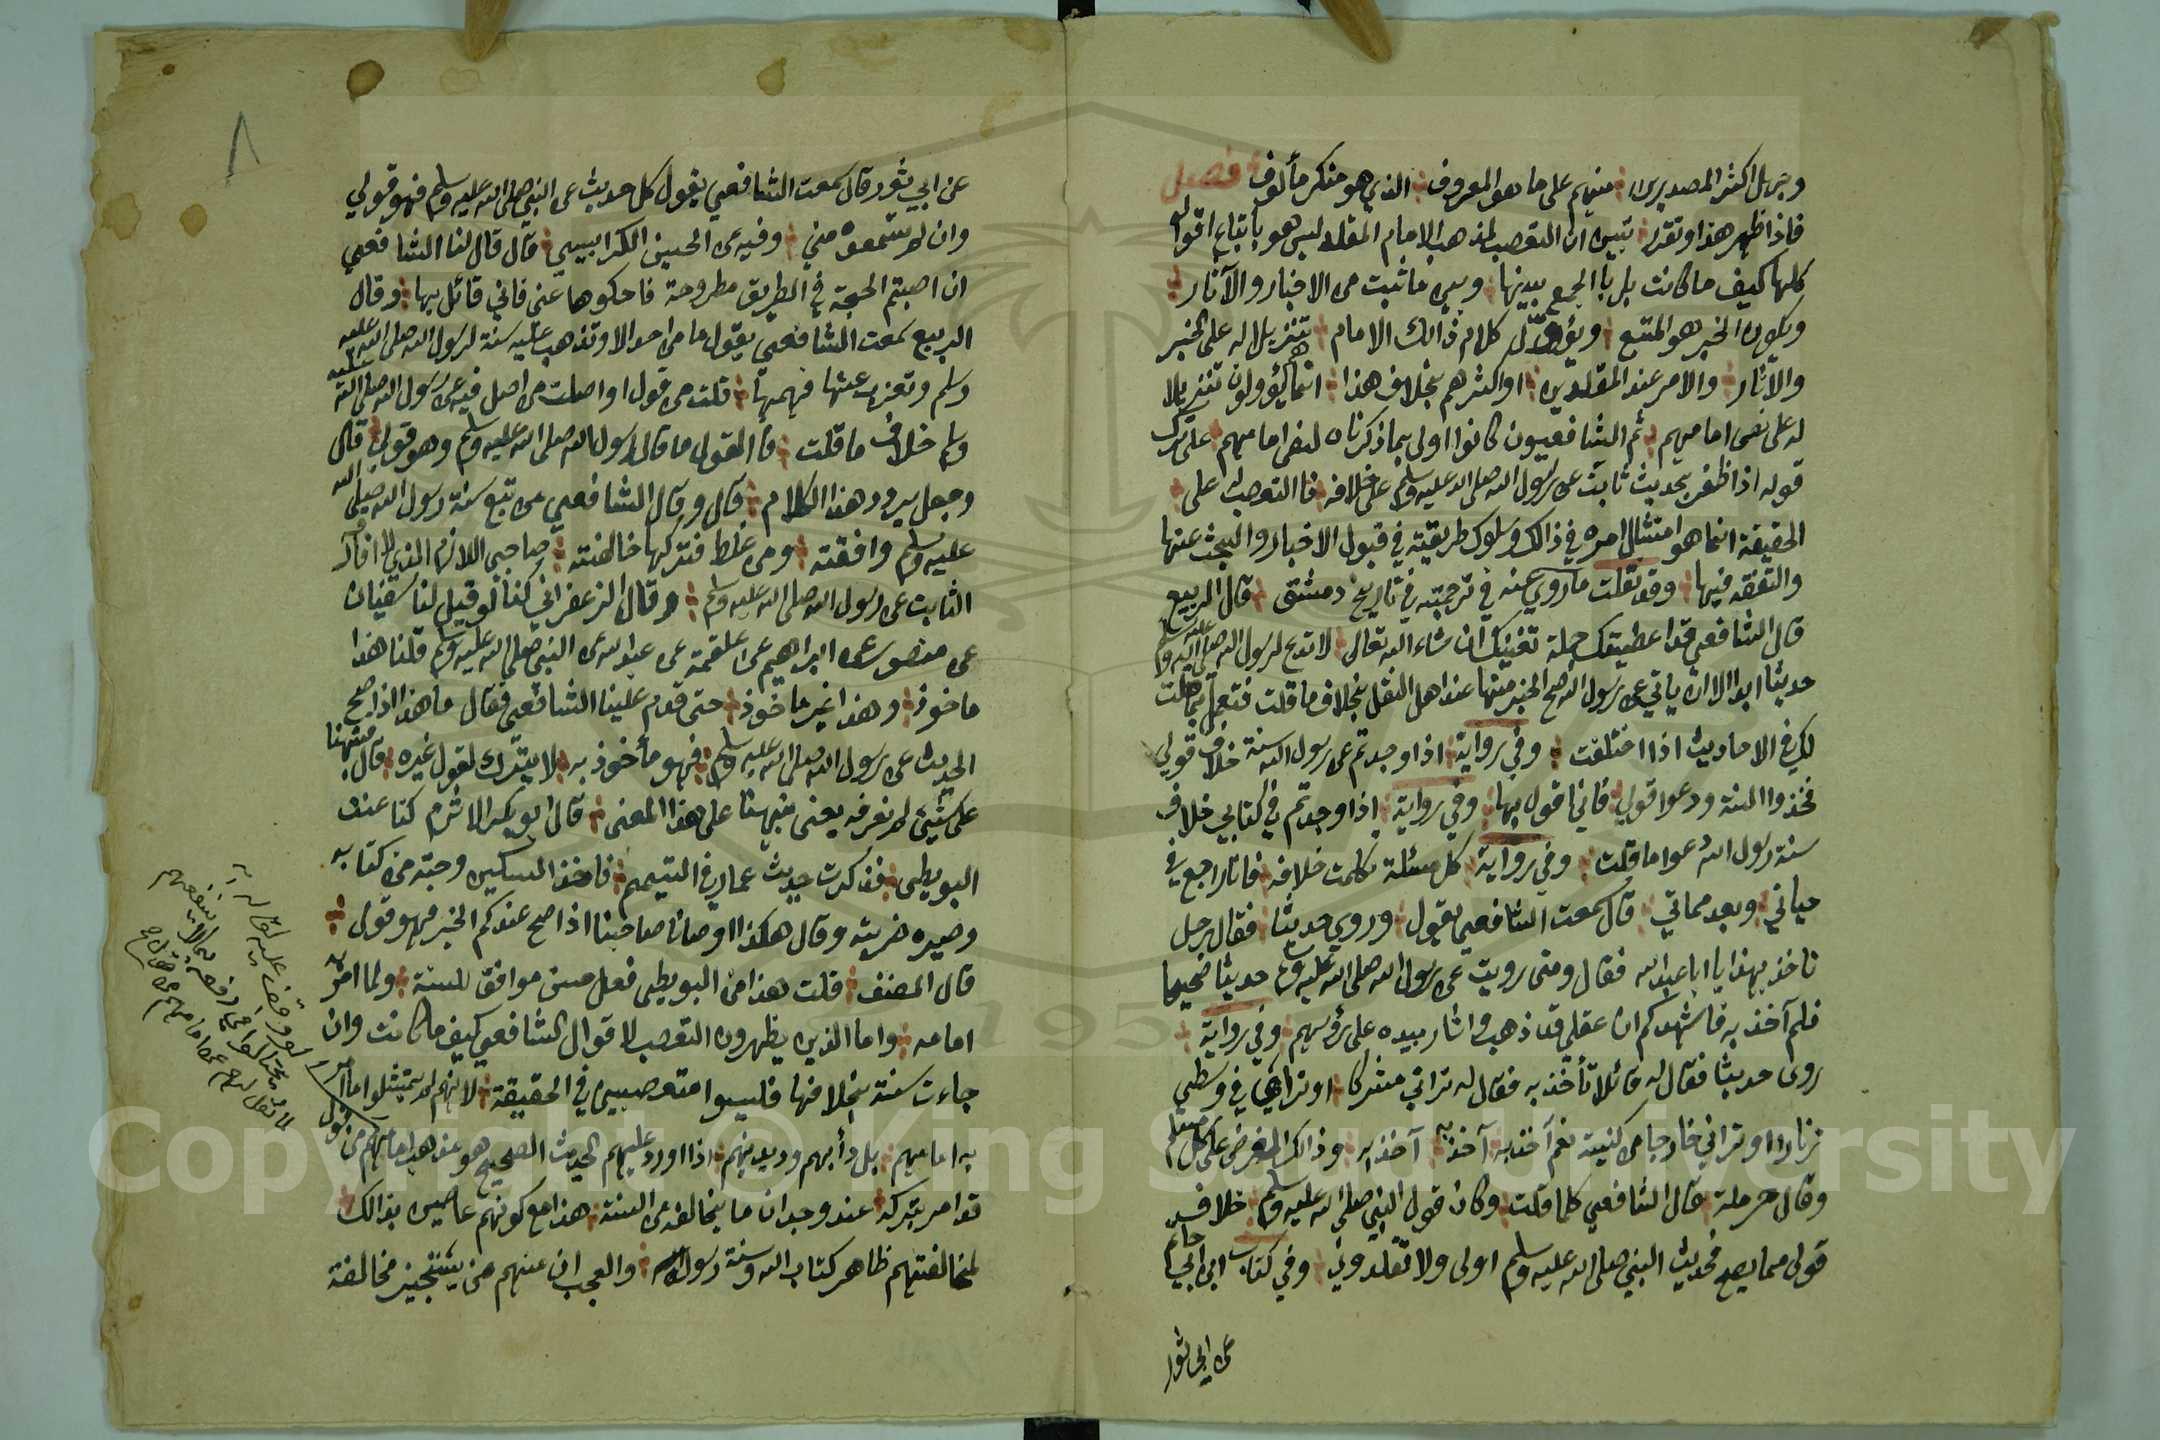 وجهل اكثر المصدرين منهم على ما هو المعروف الذي هو منكر مألوف فصل
فاذا ظهر هذا وتقرر تبين ان التعصب لمذهب الامام المقلد ليس هو باتباع اقواله
كلها كيف ما كانت بل بالجمع بينها وبين ما ثبت من الاخبار والآثار
ويكون الخبر هو المتبع ويؤول كلام ذالك الامام تنزيلا له على الخبر
والاثار والامر عند المقلدين او اكثرهم بخلاف هذا انما هم يؤولون تنزيلا
له على نص امامهم ثم الشافعيون كانوا اولى بما ذكرناه لنص امامهم على ترك
قوله اذا ظفر بحديث ثابت عن رسول الله صلى الله عليه وسلم على خلافه فالتعصب له على
الحقيقة انما هو امتثال امره في ذالك وسلوك طريقته في قبول الاخبار والبحث عنها
والتفقه فيها وقد نقلت ما روي عنه في ترجمته في تاريخ دمشق قال الربيع
قال الشافعي قد اعطيتك جملة تغنيك ان شاء الله تعالى لا تدع لرسول الله صلى الله عليه وسلم
حديثا ابدا الا ان ياتي عن رسول الله صح الخبر منها عند اهل النقل بخلاف ما قلت فتعمل بما قلت
لك في الاحاديث اذا اختلفت وفي رواية اذا وجدتم عن رسول الله سنة خلاف قولي
فخذوا السنة ودعوا قولي فاني اقول بها وفي رواية اذا وجدتم في كتابي خلاف
سنة رسول الله دعوا ما قلت وفي رواية كل مسئلة تكلمت خلافه فانا راجع في
حياتي وبعد مماتي قال سمعت الشافعي يقول وروى حديثا فقال رجل
ناخذ بهذا يا ابا عبد الله فقال ومتى رويت عن رسول الله صلى الله عليه وسلم حديثا صحيحا
فلم آخذ به فاشهدكم ان عقلي قد ذهب واشار بيده على رؤسهم وفي رواية
روى حديثا فقال له قائلا تأخذ به فقال له تراني مشركا او تراني في وسطي
زنارا او تراني خارجا من كنيسة نعم آخذ به آخذ به آخذ به وذالك الفرض على كل مسلم
وقال حرملة قال الشافعي كلما قلت وكان قول النبي صلى الله عليه وسلم خلاف
قولي مما يصح فحديث النبي صلى الله عليه وسلم اولى ولا تقلدوني وفي كتاب ابن ابي حاتم
عن ابي ثور
عن ابي ثور قال سمعت الشافعي يقول كل حديث عن النبي صلى الله عليه وسلم فهو قولي
وان لم تسمعوه مني وفيه عن الحسين الكرابيسي قال قال لنا الشافعي
ان اصبتم الحجة في الطريق مطروحة فاحكوها عني فاني قائل بها وقال
الربيع سمعت الشافعي يقول ما من احد الا وتذهب عليه سنة لرسول الله صلى الله عليه
وسلم وتعزب عنها فهمها قلت من قول او اصلت من اصل فيه عن رسول الله صلى الله عليه
وسلم خلاف ما قلت فالقول ما قال رسول الله صلى الله عليه وسلم وهو قولي قال
وجعل يردد هذا الكلام قال وقال الشافعي من تبع سنة رسول الله صلى الله
عليه وسلم وافقته ومن غلط فتركها خالفته صاحبي اللازم الذي لا افارقه
الثابت عن رسول الله صلى الله عليه وسلم وقال الزعفراني كنا لو قيل لنا سفيان
عن منصور عن ابراهيم عن علقمة عن عبد الله عن النبي صلى الله عليه وسلم قلنا هذا
ماخوذ وهذا غير ماخوذ حتى قدم علينا الشافعي فقال ما هذا اذا صح
الحديث عن رسول الله صلى الله عليه وسلم فهو مأخوذ به لا يترك لقول غيره قال فنبهنا
على شيئ لم نعرفه يعني نبهنا على هذا المعنى قال ابو بكر الاثرم كنا عند
البويطي فذكرت حديث عمار في التيمم فاخذ السكين وحته من كتابه
وصيره ضربة وقال هكذا اوصانا صاحبنا اذا صح عندكم الخبر فهو قولي
قال المصنف قلت هذا من البويطي فعل حسن موافق للسنة ولما امر به
امامه واما الذين يظهرون التعصب لاقوال الشافعي كيف ما كانت وان
جاءت سنة بخلافها فليسوا متعصبين في الحقيقة لانهم لم يمتثلوا ما امر
به امامهم بل دأبهم وديدنهم اذا اورد عليهم الحديث الصحيح هو مذهب امامهم من بقول
قد امر بتركه عند وجدان ما يخالفه من السنة هذا مع كونهم عاصين بذالك
لمخالفتهم ظاهر كتاب الله وسنة رسوله والعجب ان منهم من يستجيز مخالفة
Copyright © King Saud University
1957
٨